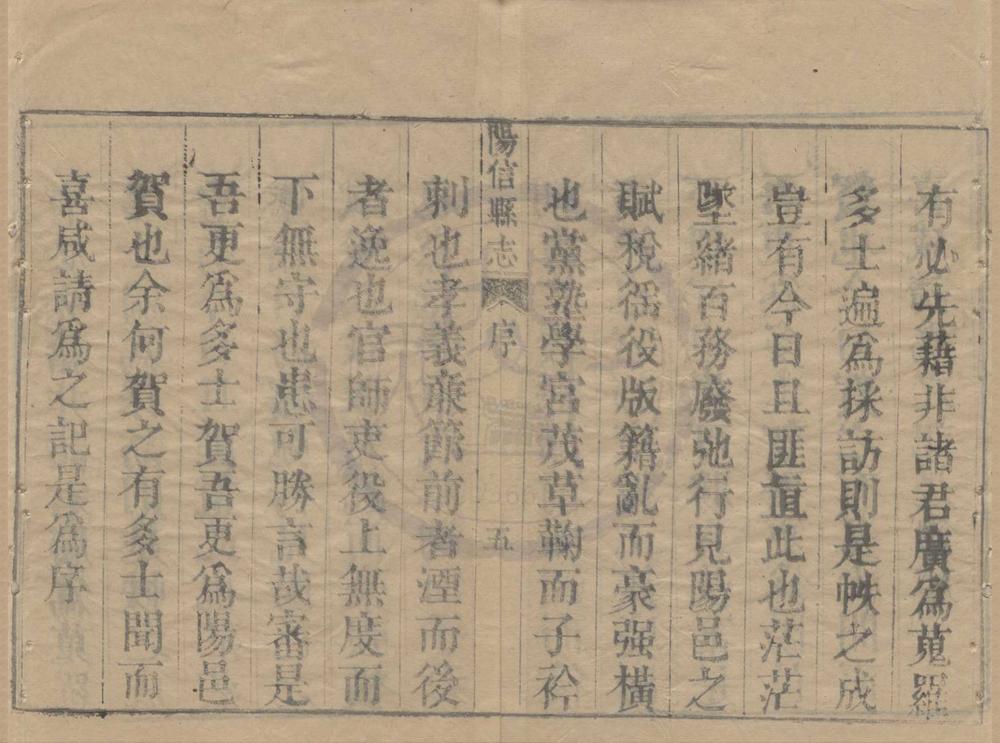 有必先藉非諸君廣爲蒐羅
多士遍爲採訪則是帙之成
豈有今日且匪直此也茫茫
墜緒百務廢弛行見陽邑之
賦稅徭役版籍亂而豪强橫
也黨塾學宮茂草鞠而子衿
刺也孝義亷節前者湮而後
者逸也官師吏役上無度而
下無守也患可勝言哉審是
吾更爲多士賀吾更爲陽邑
賀也余何賀之有多士聞而
喜咸請爲之記是爲序
陽信縣志 序 五